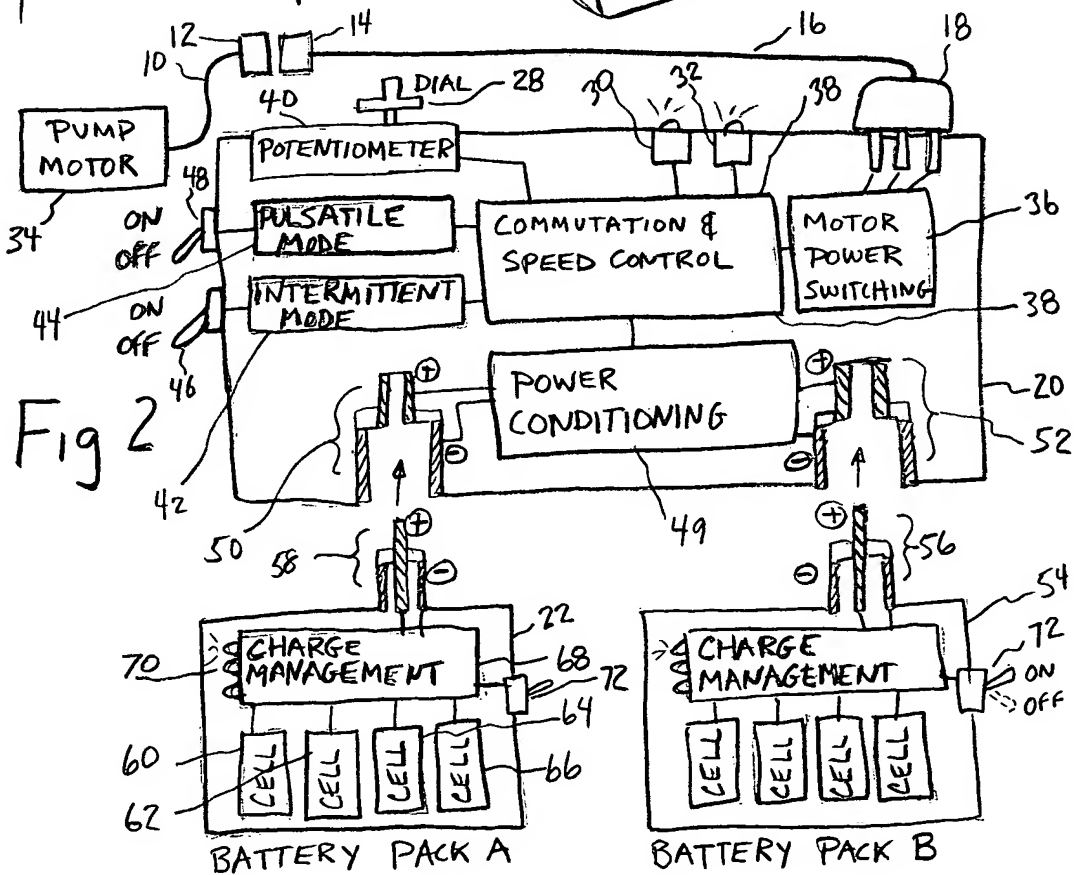 12
14
16
18
10
DIAL
28
30
32
38
40
PUMP
MOTOR
POTENTIOMETER
48
34
ON
OFF
PULSATILE
MODE
COMMUTATION &
SPEED CONTROL
MOTOR
POWER
SWITCHING
36
44
ON
OFF
46
INTERMITTENT
MODE
38
20
Fig 2
42
50
+
-
POWER
CONDITIONING
49
+
-
52
58
+
-
+
-
56
22
54
70
CHARGE
MANAGEMENT
68
72
64
60
62
66
CELL
CELL
CELL
CELL
BATTERY PACK A
CHARGE
MANAGEMENT
72
ON
OFF
CELL
CELL
CELL
CELL
BATTERY PACK B